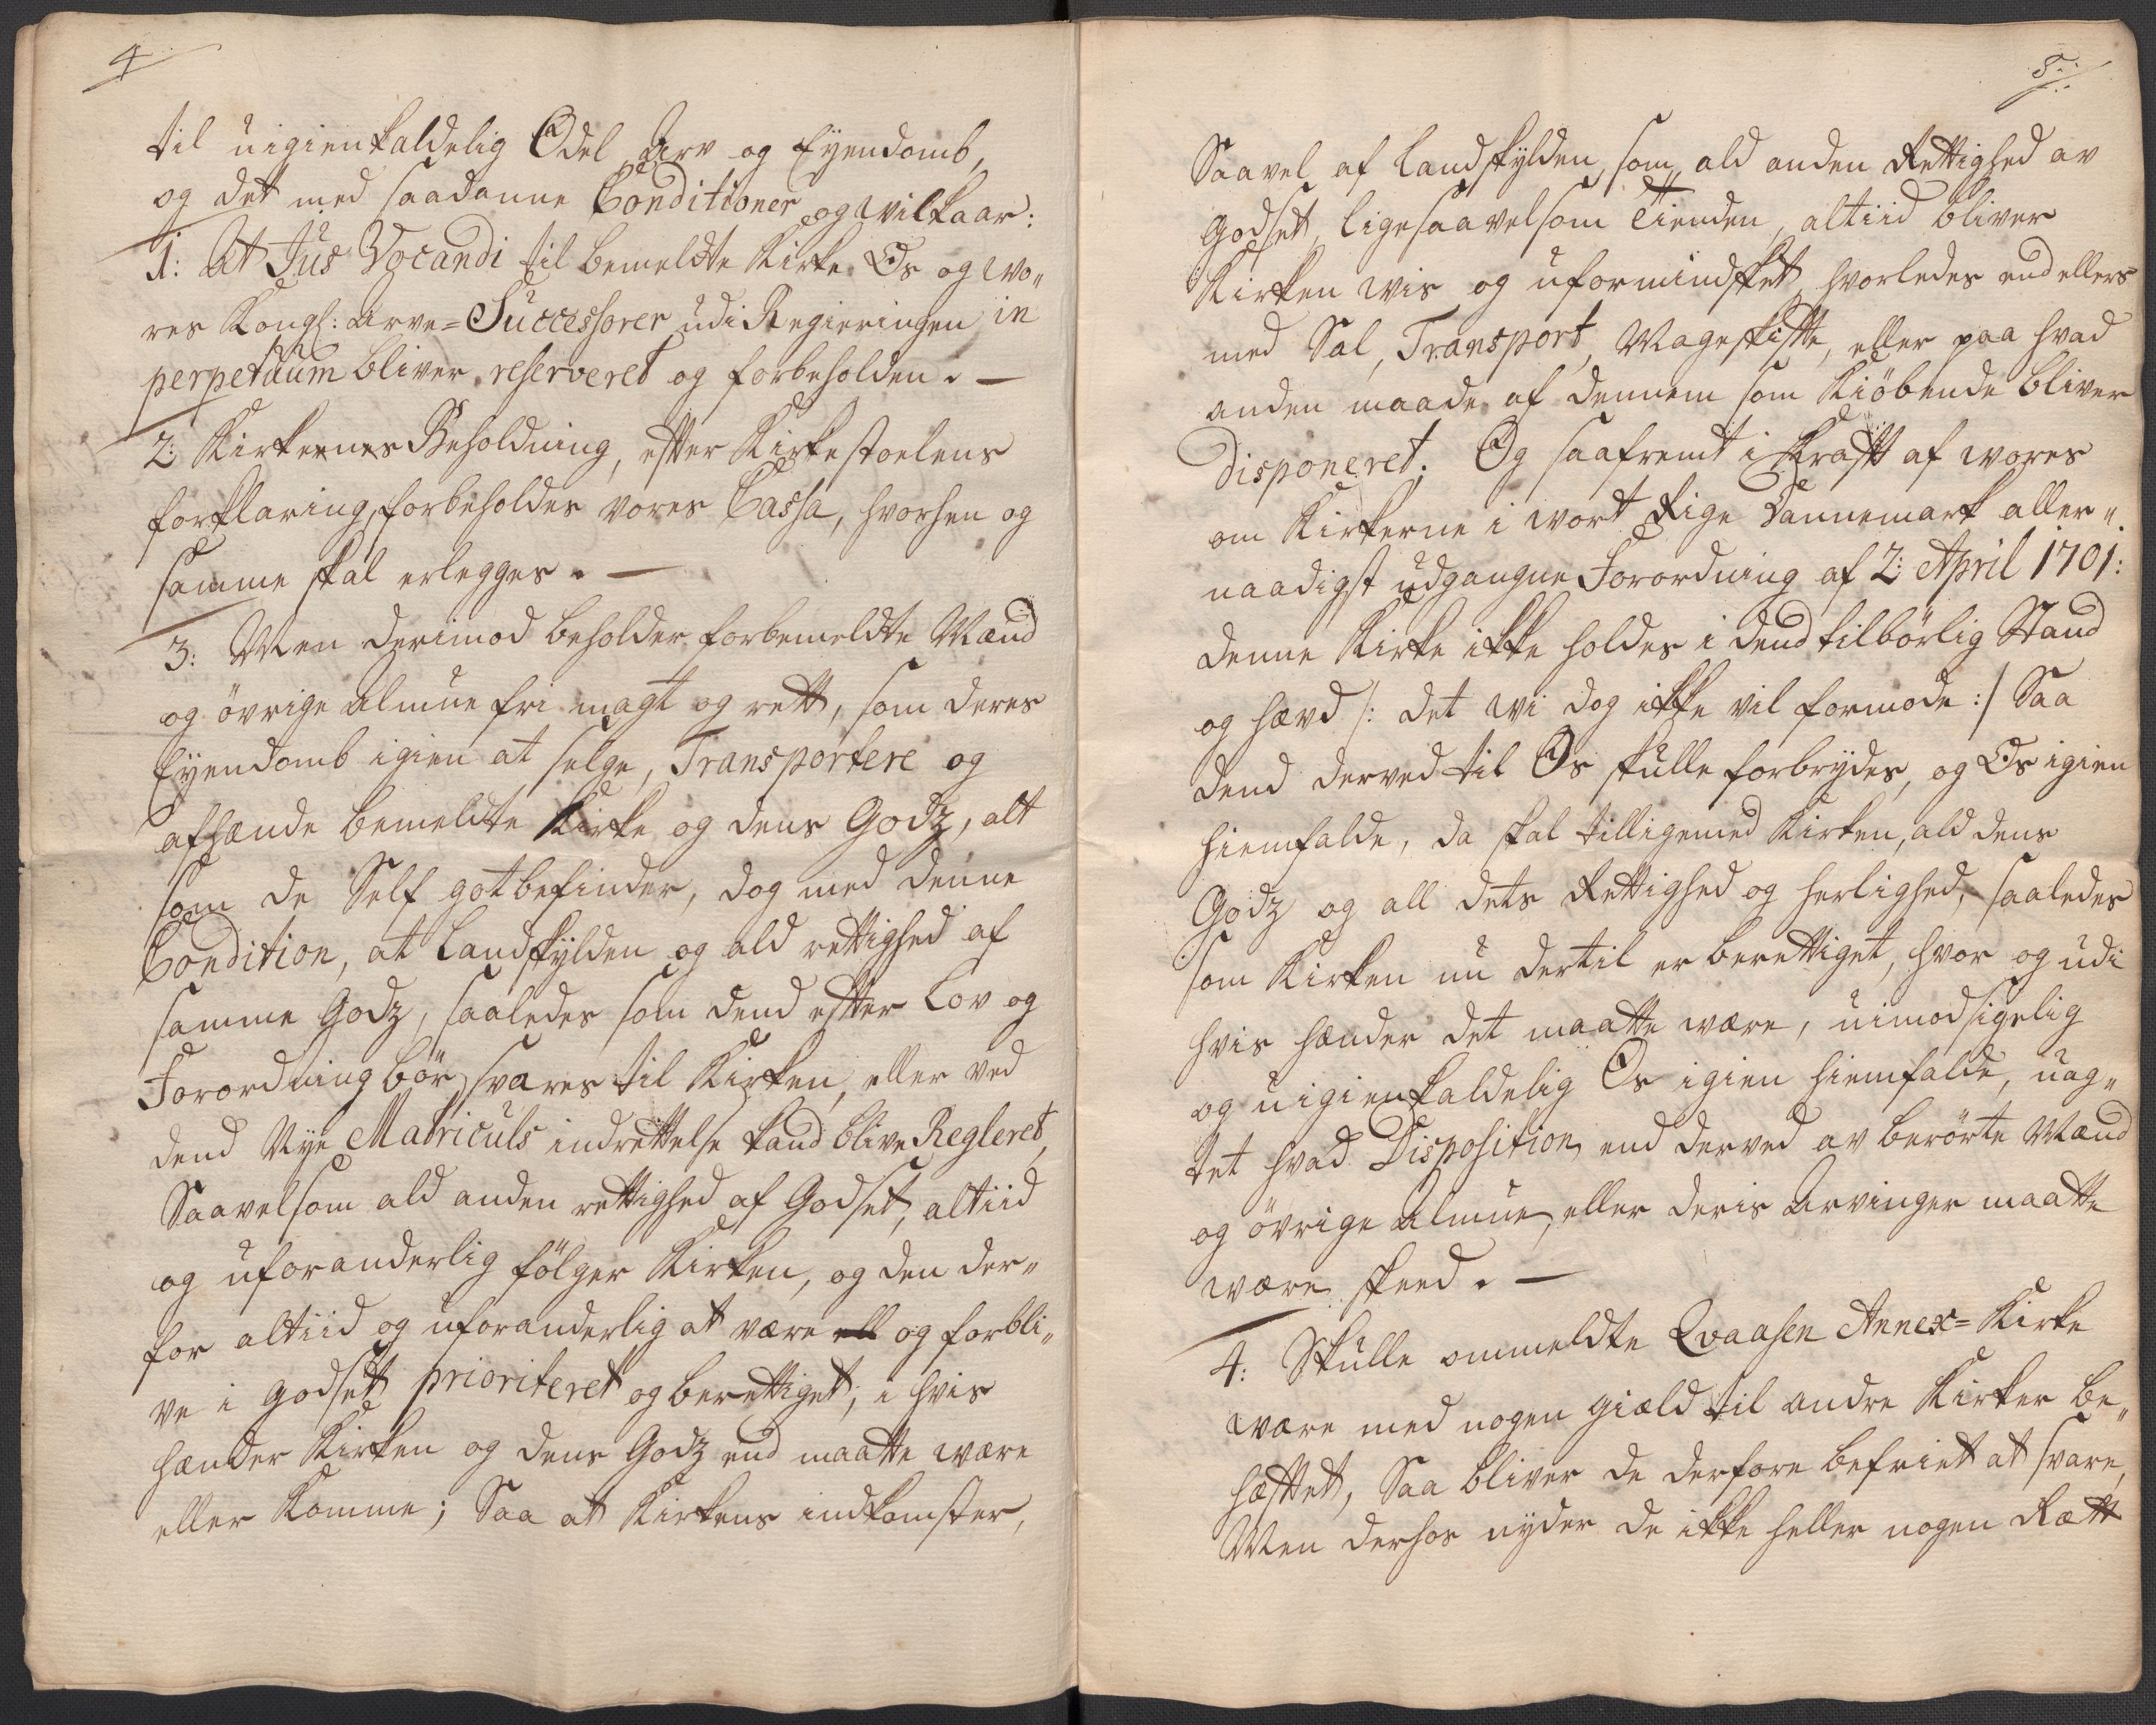 4
til uigienkaldelig Odel, Arv og Eyendomb,
og det med saadanne Conditioner og wilkaar:
1: At Jus Vocandi til bemeldte Kirke Os og wo„
res Kongl: Arve=Successorer udi Regieringen in
perpetuum bliver reserveret og forbeholden. —
2: Kirkernes Beholdning, efter Kirkestoelens
forklaring, forbeholdes vores Cassa, hvorhen og
samme skal erlegges. —
3: Men derimod beholder forbemeldte Mænd
og övrige Almue fri magt og rett, som deres
Eyendomb igien at selge, Transportere og
afhænde bemeldte Kirke og dens Godz, alt
som de Self gotbefinder, dog med denne
Condition, at Landskylden og ald rettighed af
samme Godz, saaledes som dend efter Lov og
Forordning bör svares til Kirken, eller ved
dend Nye Matriculs indrettelse kand blive Regleret,
Saavelsom ald anden rettighed af Godset, altiid
og uforanderlig fölger Kirken, og den der„
for altiid og uforanderlig at være ell og forbli„
ve i Godset prioriteret og berettiget, i hvis
hænder Kirken og dens Godz end maatte være
eller komme; Saa at Kirkens indkomster,
5:
Saavel af Landskylden, som ald anden Rettighed av
Godset, ligesaavelsom Tienden, altiid bliver
Kirken wis og uformindsket, hvorledes end ellers
med Sal, Transport, Mageskifte, eller paa hvad
anden maade af dennem som Kiöbende bliver
disponeret. Og saafremt i Kraft af wores
om Kirkerne i wort Rige Dannemark aller„
naadigst udgangne Forordning af 2: April 1701:
denne Kirke ikke holdes i dend tilbörlig Stand
og hævd /: det wi dog ikke vil formode :/ Saa
dend derved til Os skulle forbrydes, og Os igien
hiemfalde, da skal tilligemed Kirken, ald dens
Godz og all dets Rettighed og herlighed, saaledes
som Kirken nu dertil er berettiget, hvor og udi
hvis hænder det maatte være, uimodsigelig
og uigienkaldelig Os igien hiemfalde, uag„
tet hvad Disposition end derved av berörte Mænd
og övrige Almue, eller deris Arvinger maatte
være skeed. —
4: Skulle ommeldte Qvaasen Annex=Kirke
være med nogen giæld til andre Kirker be„
hæftet, Saa bliver de derfore befriet at svare,
Men derhos nyder de ikke heller nogen Rætt